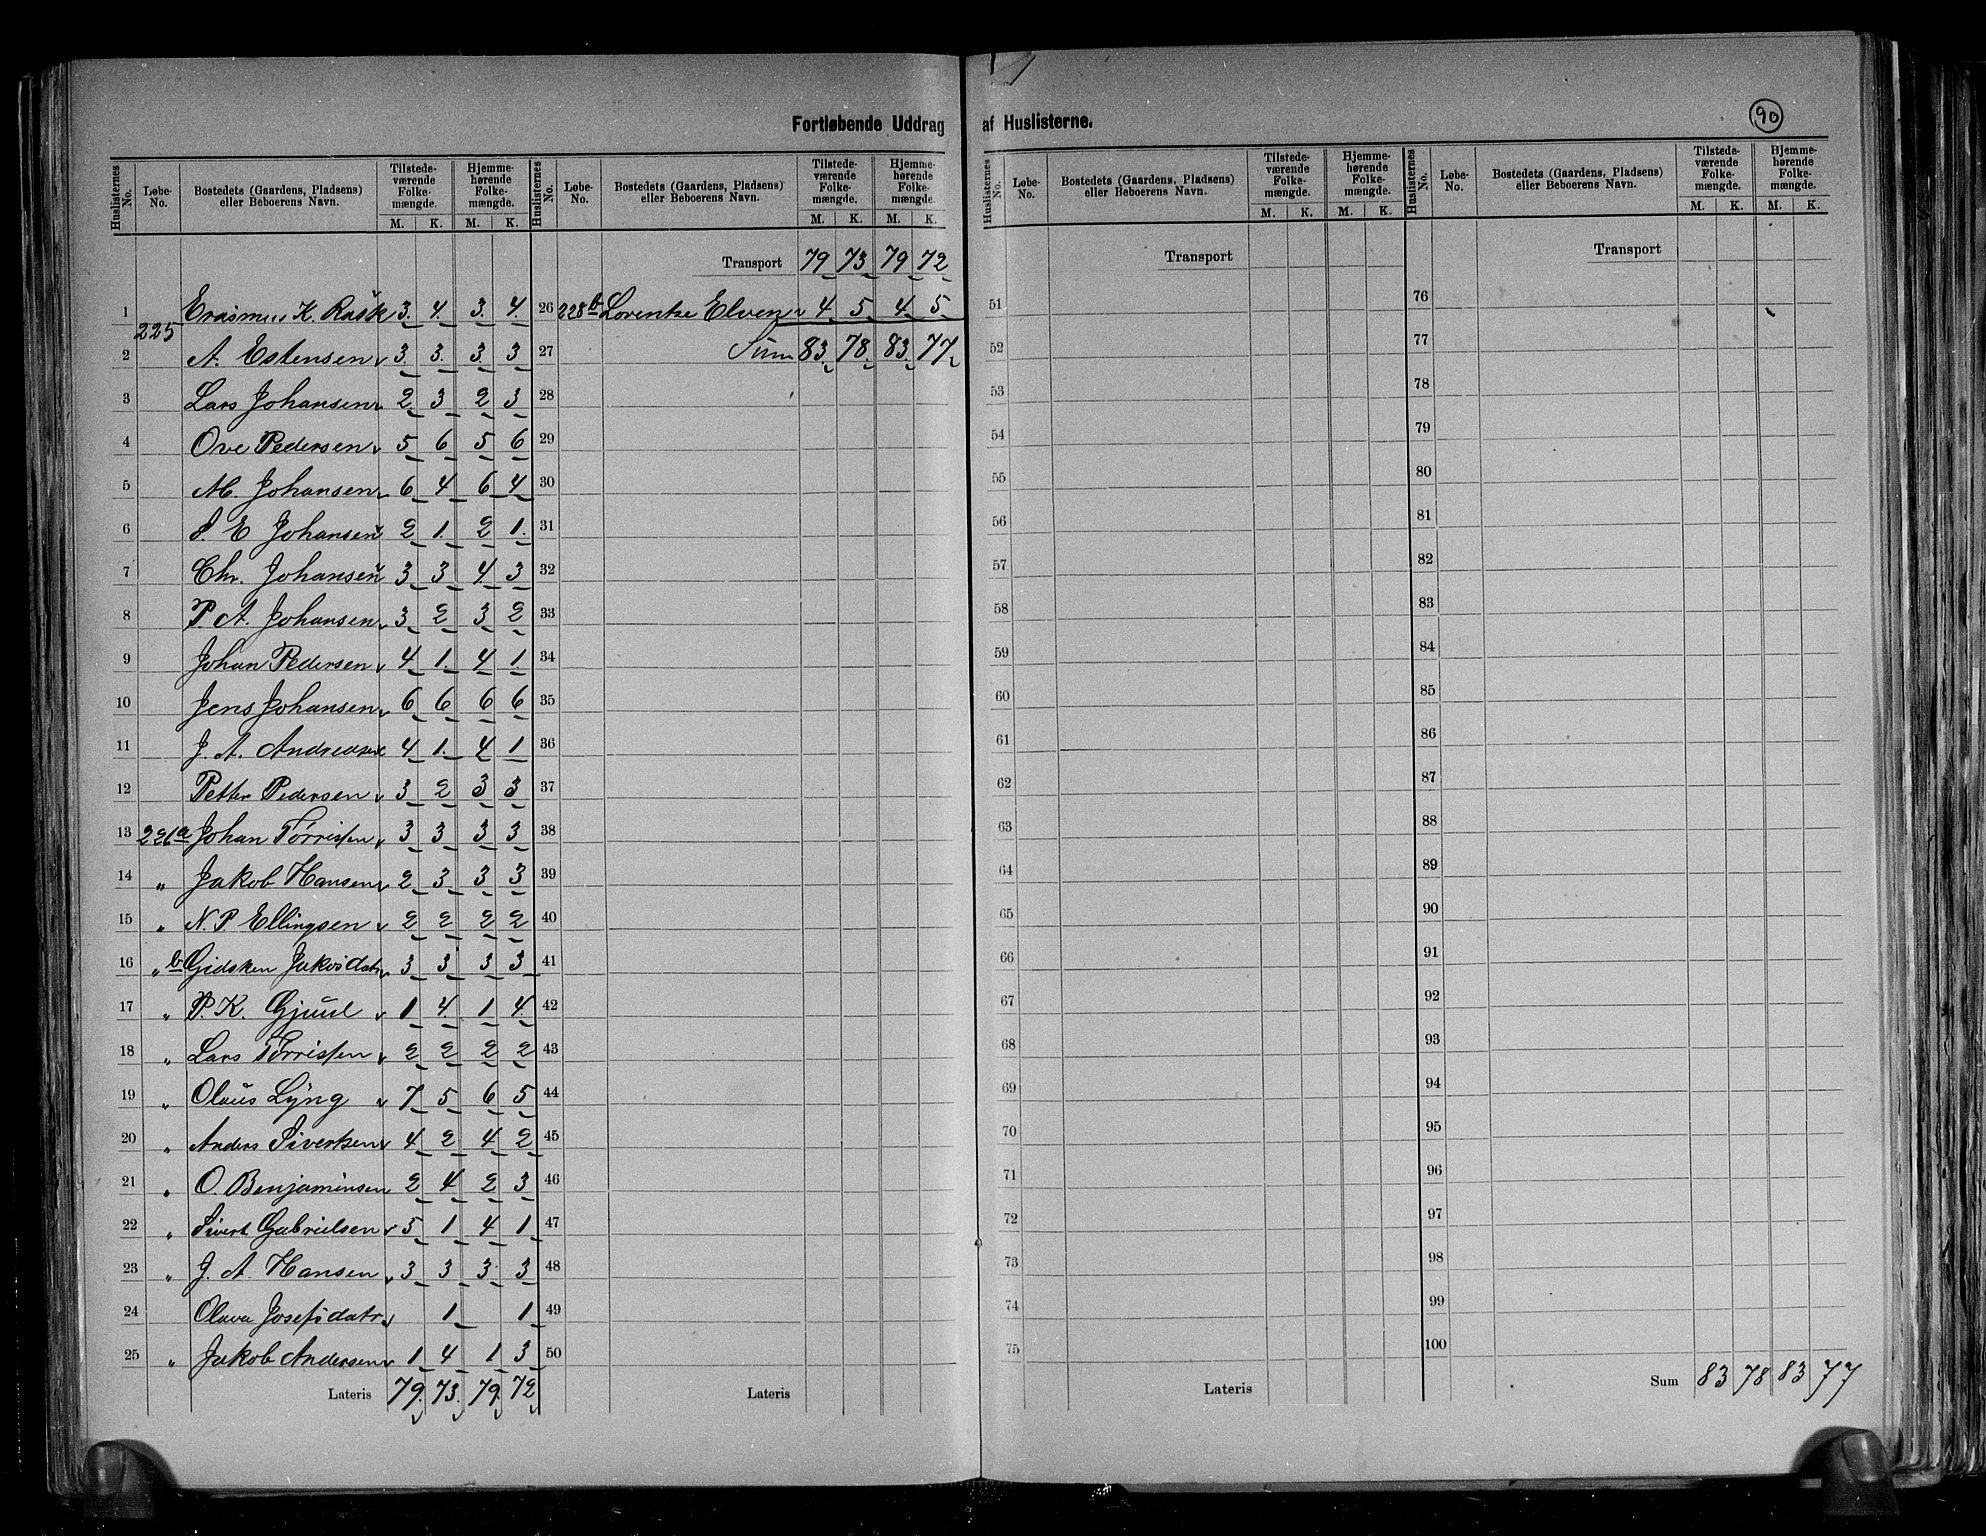 Fortløbende Uddrag af Huslisterne.
90
Huslisternes No. Løbe-No. Bostedets (Gaardens, Pladsens) eller Beboerens Navn. Tilstede-værende Folke-mængde. M. K. Hjemme-hørende Folke-mængde. M. K.
1 225 Erasmus K. Rask 3 4 3 4
2 A. Estensen 3 3 3 3
3 Lars Johansen 2 3 2 3
4 Ove Pedersen 5 6 5 6
5 M. Johansen 6 4 6 4
6 E Johansen 2 1 2 1
7 Chr. Johansen 3 3 4 3
8 P. A. Johansen 3 2 3 2
9 Johan Pedersen 4 1 4 1
10 Jens Johansen 6 6 6 6
11 J. A. Andreasen 4 1 4 1
12 Petter Pedersen 3 2 3 3
13 226 a Johan Tørrissen 3 3 3 3
14 " Jakob Hansen 2 3 3 3
15 " N. P Ellingsen 2 2 2 2
16 " b Gidsken Jakobdatr 3 3 3 3
17 " P. K. Gjuul 1 4 1 4
18 " Lars Tørrissen 2 2 2 2
19 " Olaus Lyng 7 5 6 5
20 " Anders Sivertsen 4 2 4 2
21 " O. Benjaminsen 2 4 2 3
22 " Sivert Gabrielsen 5 1 4 1
23 " J. A. Hansen 3 3 3 3
24 Olava Josefsdatr 1 1
25 " Jakob Andersen 1 4 1 3
Lateris 79 73 79 72
Huslisternes No. Løbe-No. Bostedets (Gaardens, Pladsens) eller Beboerens Navn. Tilstede-værende Folke-mængde. M. K. Hjemme-hørende Folke-mængde. M. K.
Transport 79 73 79 72
26 228 b Lorentse Elven 4 5 4 5
27 Sum 83 78 83 77
28
29
30
31
32
33
34
35
36
37
38
39
40
41
42
43
44
45
46
47
48
49
50
Lateris
Huslisternes No. Løbe-No. Bostedets (Gaardens, Pladsens) eller Beboerens Navn. Tilstede-værende Folke-mængde. M. K. Hjemme-hørende Folke-mængde. M. K.
Transport
51
52
53
54
55
56
57
58
59
60
61
62
63
64
65
66
67
68
69
70
71
72
73
74
75
Lateris
Huslisternes No. Løbe-No. Bostedets (Gaardens, Pladsens) eller Beboerens Navn. Tilstede-værende Folke-mængde. M. K. Hjemme-hørende Folke-mængde. M. K.
Transport
76
77
78
79
80
81
82
83
84
85
86
87
88
89
90
91
92
93
94
95
96
97
98
99
100
Sum 83 78 83 77